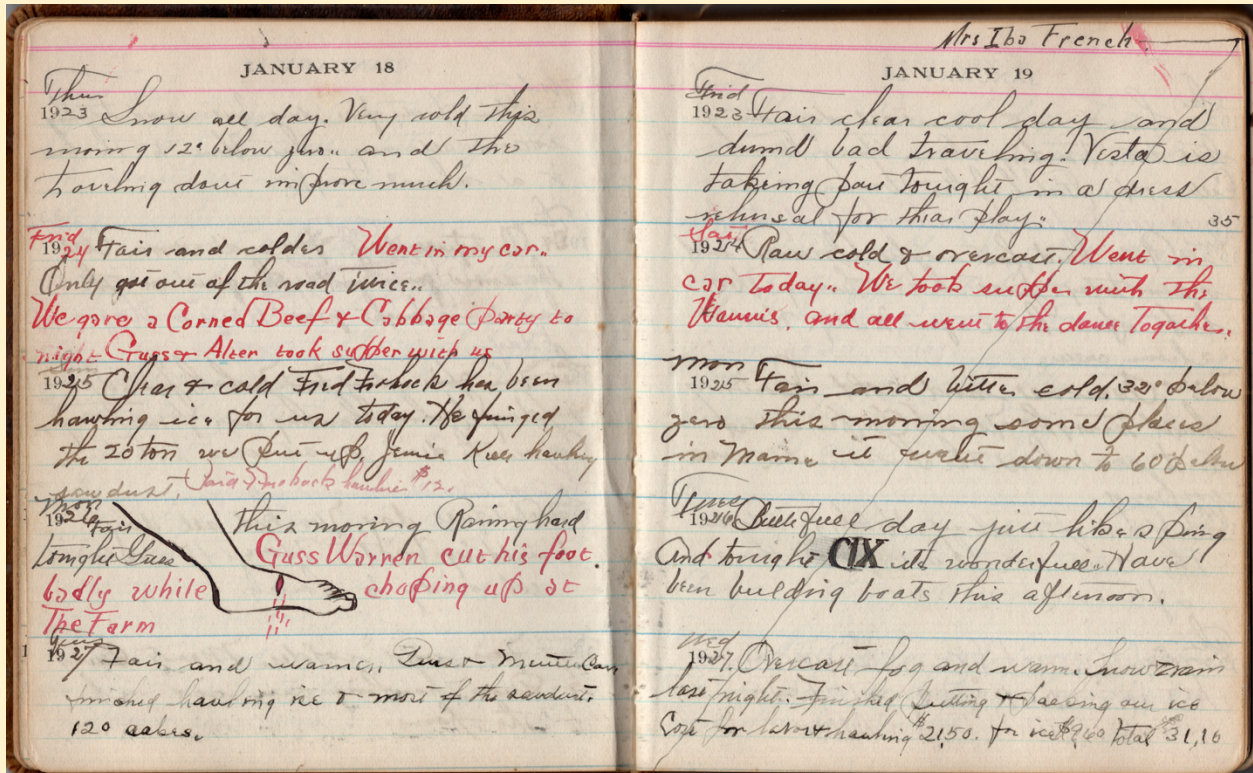 JANUARY 18
Thur
1923 Snow all day. Very cold this
moring 12° below zero.. and the
traveling dout improve much.
Frid
1924 Fair and colder Went in my car..
Only got out of the road twice..
We gave a Corned Beef & Cabbage party to
night Guss & Alter took supper with us
Sun
1925 Clear & cold Fred Frohock has been
hawling ice for us today. He finged
the 20 ton we put up, Jennie hawling
sawdust. Paid Frohock hawling $12.
Mon
1926 Fair this moring Rainy hard
tonight Guss
Guss Warren cut his foot
badly while choping up at
The Farm
Tues
1927 Fair and warmer. Guss &
finished hawling ice & most of the sawdust.
120 cakes.
Mrs Iba French
JANUARY 19
Frid
1923 Fair clear cool day and
dumd bad traveling. Vesta is
takeing part tonight in a dress
rehersal for thear play..
35
Sat
1924 Raw cold & overcast. Went in
car today.. We took supper with the
and all went to the dance Togather.
Mon
1925 Fair and bitter cold. 32° below
zero this morning some places
in Maine it went down to 60 below
Tues
1926 Butifull day just like sping
and tonight CIX its wonderfull. Have
been building boats this afternoon.
Wed
1927. Overcast fog and warm. Snow & rain
last night. Finished putting & packing our ice
Cost for labor & hawling $21.50. for ice $9.60 Total $31,10